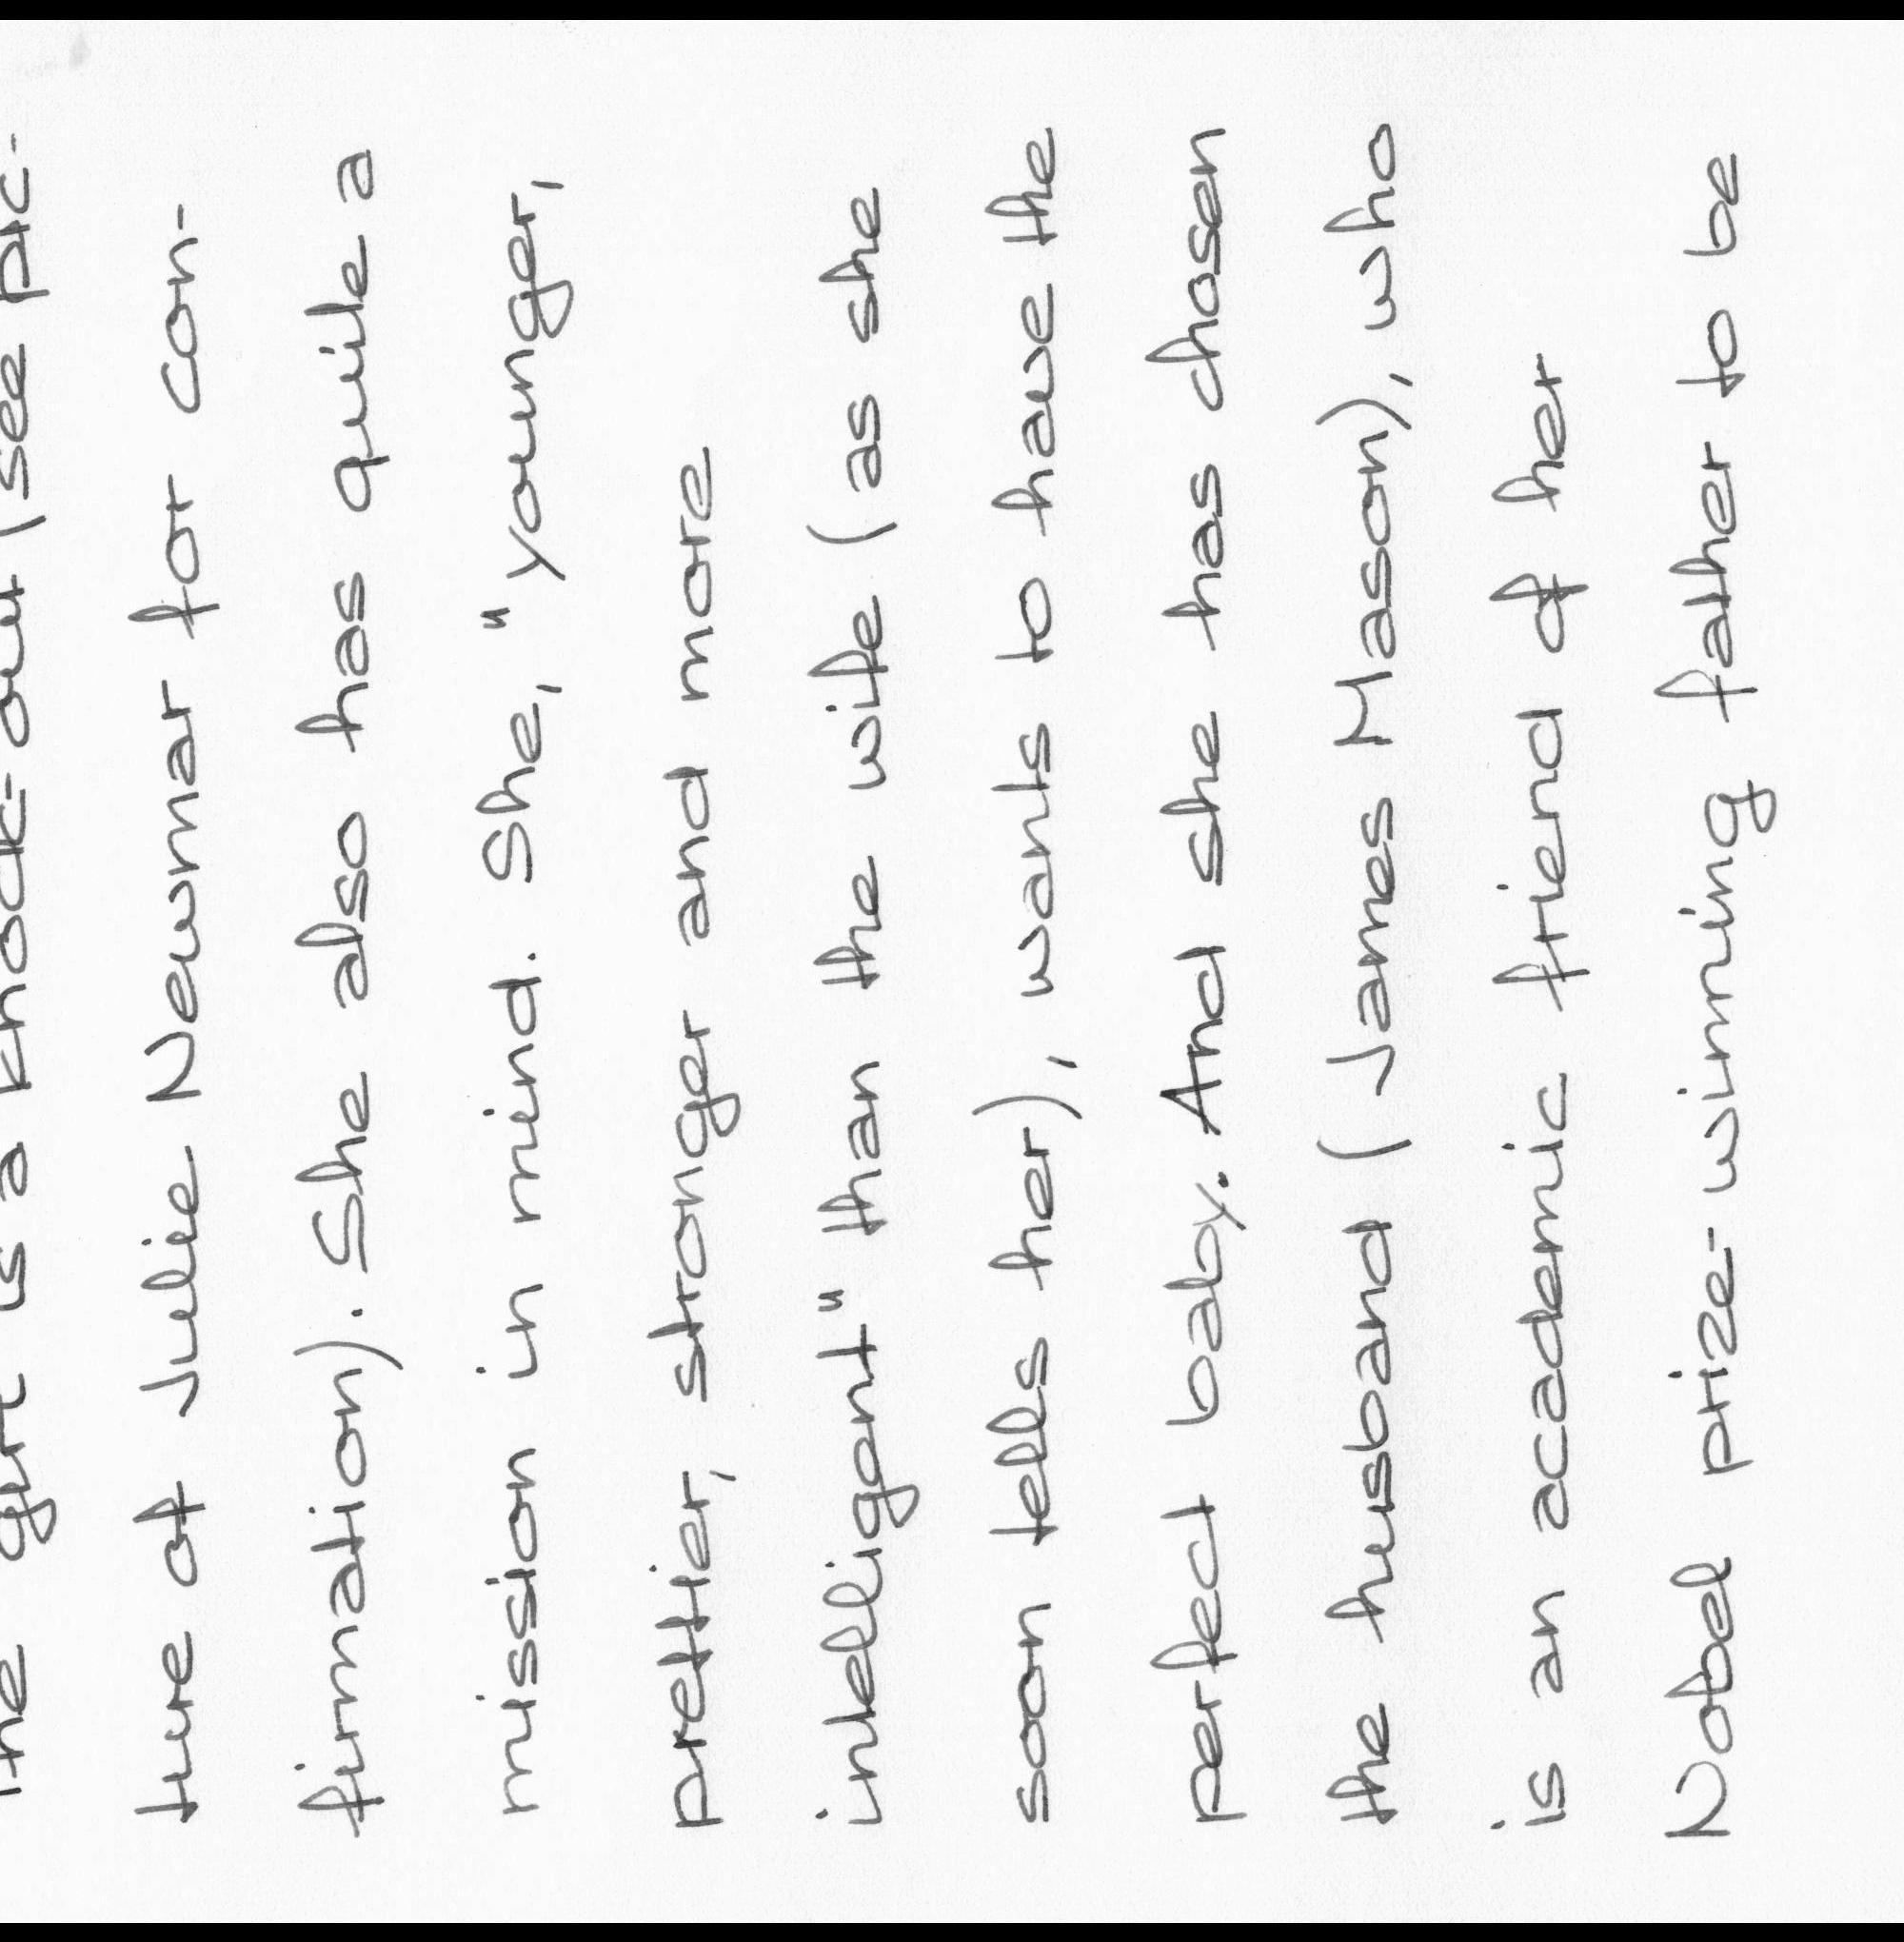 The girl is a knock-out (see pic-
ture of Julie Newmar for con-
firmation). She also has quite a
mission in mind. She, "younger,
prettier, stronger and more
intelligent" than the wife (as she
soon tells her), wants to have the
perfect baby. And she has chosen
the husband (James Mason), who
is an accademic friend of her
Nobel prize-winning father to be